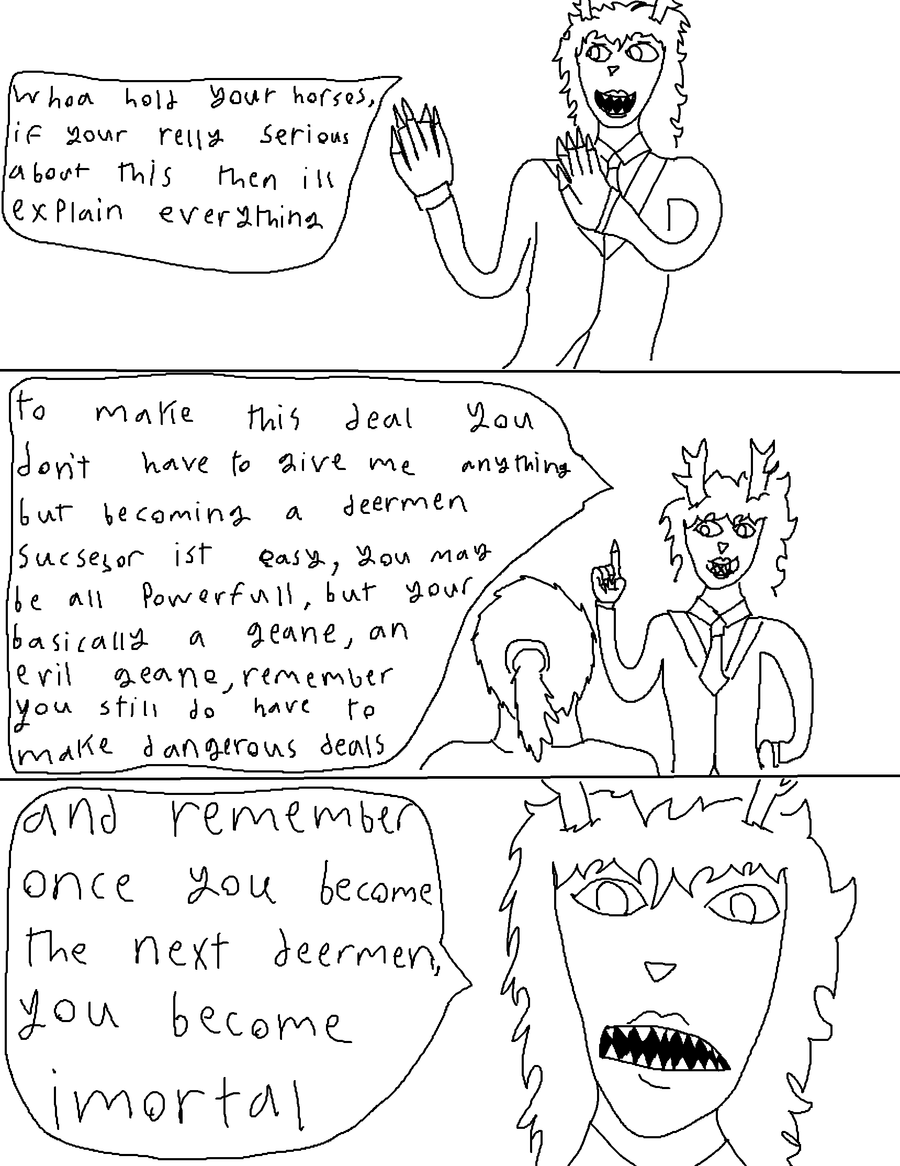 whoa hold your horses,
if your relly serious
about this then ill
explain everything
to make this deal you
don't have to give me anything
but becoming a deermen
sucsesor ist easy, you may
be all powerfull, but your
basically a geane, an
evil geane, remember
you still do have to
make dangerous deals
and remember
once you become
the next deermen,
you become
imortal